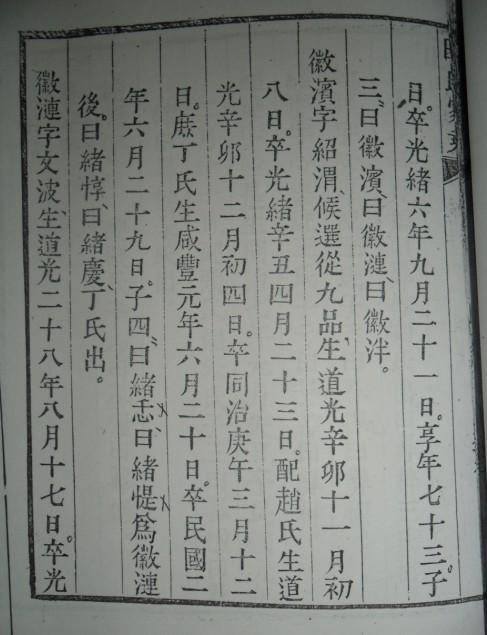 日。卒光緒六年九月二十一日。享年七十三。子
三、曰徽濱、曰徽漣、曰徽泮。
徽濱字紹渭、候選從九品、生道光辛卯十一月初
八日。卒光緒辛丑四月二十三日。配趙氏生道
光辛卯十二月初四日。卒同治庚午三月十二
日。庶丁氏生咸豐元年六月二十日。卒民國二
年六月二十九日。子四、曰緒志、曰緒惿、爲徽漣
後。曰緒惇、曰緒慶、丁氏出。
徽漣字文波、生道光二十八年八月十七日。卒光